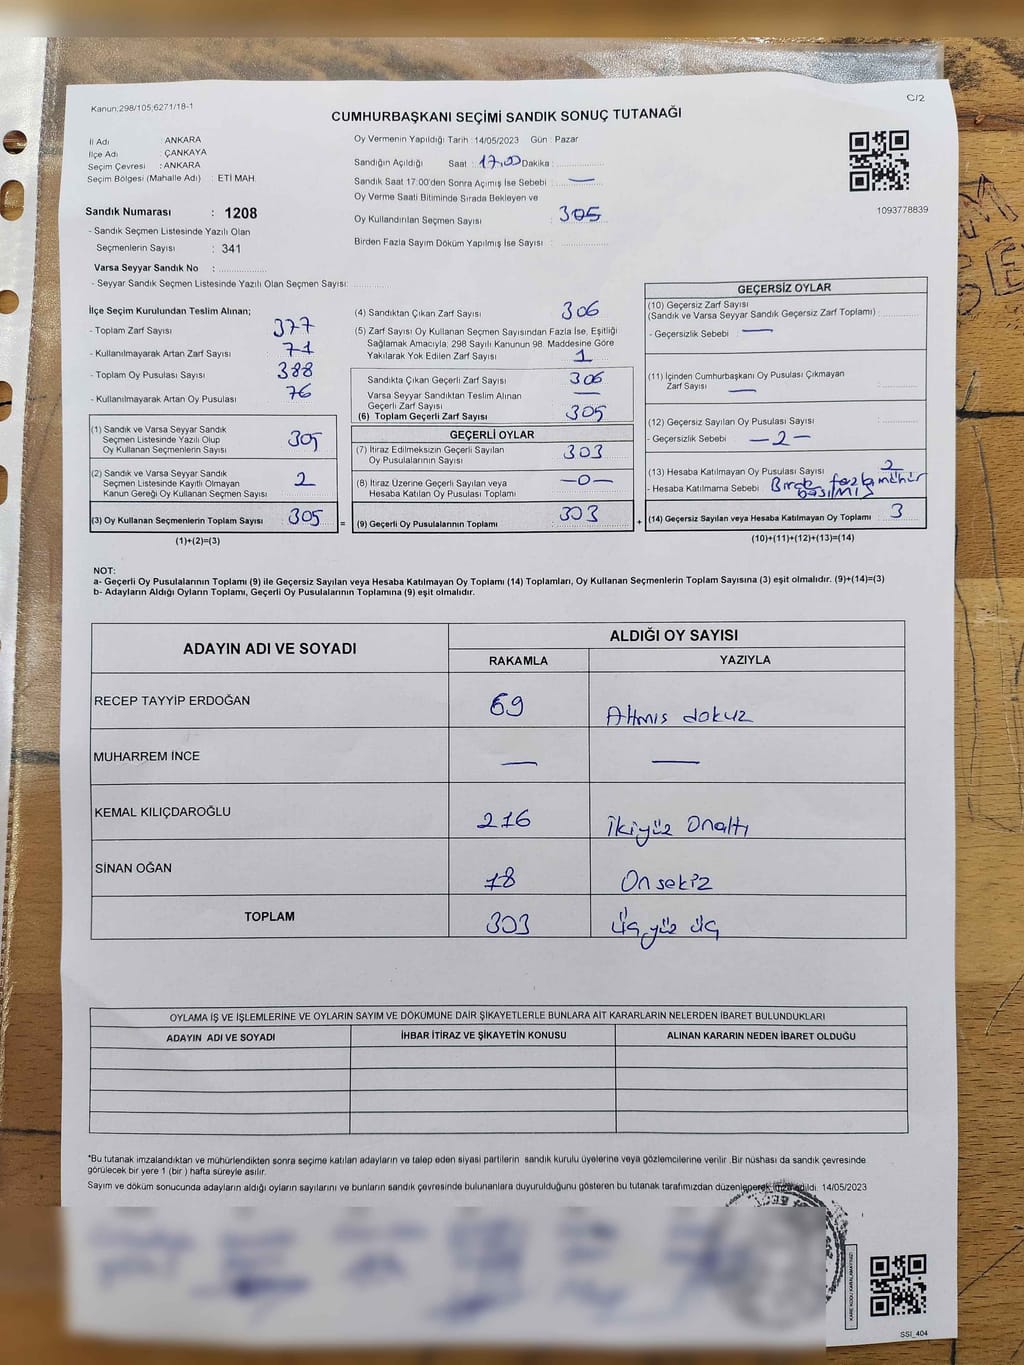 Kanun;298/105;6271/18-1
C/2
CUMHURBAŞKANI SEÇİMİ SANDIK SONUÇ TUTANAĞI
İl Adı : ANKARA
İlçe Adı : ÇANKAYA
Seçim Çevresi : ANKARA
Seçim Bölgesi (Mahalle Adı) : ETİ MAH.
Sandık Numarası : 1208
- Sandık Seçmen Listesinde Yazılı Olan
Seçmenlerin Sayısı : 341
Varsa Seyyar Sandık No :
- Seyyar Sandık Seçmen Listesinde Yazılı Olan Seçmen Sayısı:
Oy Vermenin Yapıldığı Tarih :14/05/2023 Gün : Pazar
Sandığın Açıldığı Saat : 17.00 Dakika :
Sandık Saat 17:00'den Sonra Açımış İse Sebebi : —
Oy Verme Saati Bitiminde Sırada Bekleyen ve
Oy Kullandırılan Seçmen Sayısı : 305
Birden Fazla Sayım Döküm Yapılmış İse Sayısı :
1093778839
İlçe Seçim Kurulundan Teslim Alınan;
- Toplam Zarf Sayısı 377
- Kullanılmayarak Artan Zarf Sayısı 71
- Toplam Oy Pusulası Sayısı 388
- Kullanılmayarak Artan Oy Pusulası 76
(1) Sandık ve Varsa Seyyar Sandık
Seçmen Listesinde Yazılı Olup
Oy Kullanan Seçmenlerin Sayısı 305
(2) Sandık ve Varsa Seyyar Sandık
Seçmen Listesinde Kayıtlı Olmayan
Kanun Gereği Oy Kullanan Seçmen Sayısı 2
(3) Oy Kullanan Seçmenlerin Toplam Sayısı 305 =
(1)+(2)=(3)
(4) Sandıktan Çıkan Zarf Sayısı 306
(5) Zarf Sayısı Oy Kullanan Seçmen Sayısından Fazla İse, Eşitliği
Sağlamak Amacıyla; 298 Sayılı Kanunun 98. Maddesine Göre
Yakılarak Yok Edilen Zarf Sayısı 1
Sandıkta Çıkan Geçerli Zarf Sayısı 306
Varsa Seyyar Sandıktan Teslim Alınan
Geçerli Zarf Sayısı —
(6) Toplam Geçerli Zarf Sayısı 305
GEÇERLİ OYLAR
(7) İtiraz Edilmeksizin Geçerli Sayılan
Oy Pusulalarının Sayısı 303
(8) İtiraz Üzerine Geçerli Sayılan veya
Hesaba Katılan Oy Pusulaları Toplamı —0—
(9) Geçerli Oy Pusulalarının Toplamı 303 +
GEÇERSİZ OYLAR
(10) Geçersiz Zarf Sayısı
(Sandık ve Varsa Seyyar Sandık Geçersiz Zarf Toplamı) :
- Geçersizlik Sebebi : —
(11) İçinden Cumhurbaşkanı Oy Pusulası Çıkmayan
Zarf Sayısı —
(12) Geçersiz Sayılan Oy Pusulası Sayısı :
- Geçersizlik Sebebi : —2—
(13) Hesaba Katılmayan Oy Pusulası Sayısı 2
- Hesaba Katılmama Sebebi : fazla mühür
basılmış
(14) Geçersiz Sayılan veya Hesaba Katılmayan Oy Toplamı 3
(10)+(11)+(12)+(13)=(14)
NOT:
a- Geçerli Oy Pusulalarının Toplamı (9) ile Geçersiz Sayılan veya Hesaba Katılmayan Oy Toplamı (14) Toplamları, Oy Kullanan Seçmenlerin Toplam Sayısına (3) eşit olmalıdır. (9)+(14)=(3)
b- Adayların Aldığı Oyların Toplamı, Geçerli Oy Pusulalarının Toplamına (9) eşit olmalıdır.
ADAYIN ADI VE SOYADI
ALDIĞI OY SAYISI
RAKAMLA YAZIYLA
RECEP TAYYİP ERDOĞAN 69 Altmış dokuz
MUHARREM İNCE — —
KEMAL KILIÇDAROĞLU 216 İkiyüz Onaltı
SİNAN OĞAN 18 Onsekiz
TOPLAM 303 Üçyüz üç
OYLAMA İŞ VE İŞLEMLERİNE VE OYLARIN SAYIM VE DÖKÜMÜNE DAİR ŞİKAYETLERLE BUNLARA AİT KARARLARIN NELERDEN İBARET BULUNDUKLARI
ADAYIN ADI VE SOYADI İHBAR İTİRAZ VE ŞİKAYETİN KONUSU ALINAN KARARIN NEDEN İBARET OLDUĞU
*Bu tutanak imzalandıktan ve mühürlendikten sonra seçime katılan adayların ve talep eden siyasi partilerin sandık kurulu üyelerine veya gözlemcilerine verilir .Bir nüshası da sandık çevresinde
görülecek bir yere 1 (bir ) hafta süreyle asılır.
Sayım ve döküm sonucunda adayların aldığı oyların sayılarını ve bunların sandık çevresinde bulunanlara duyurulduğunu gösteren bu tutanak tarafımızdan düzenlenerek imza edildi. 14/05/2023
SSI_404